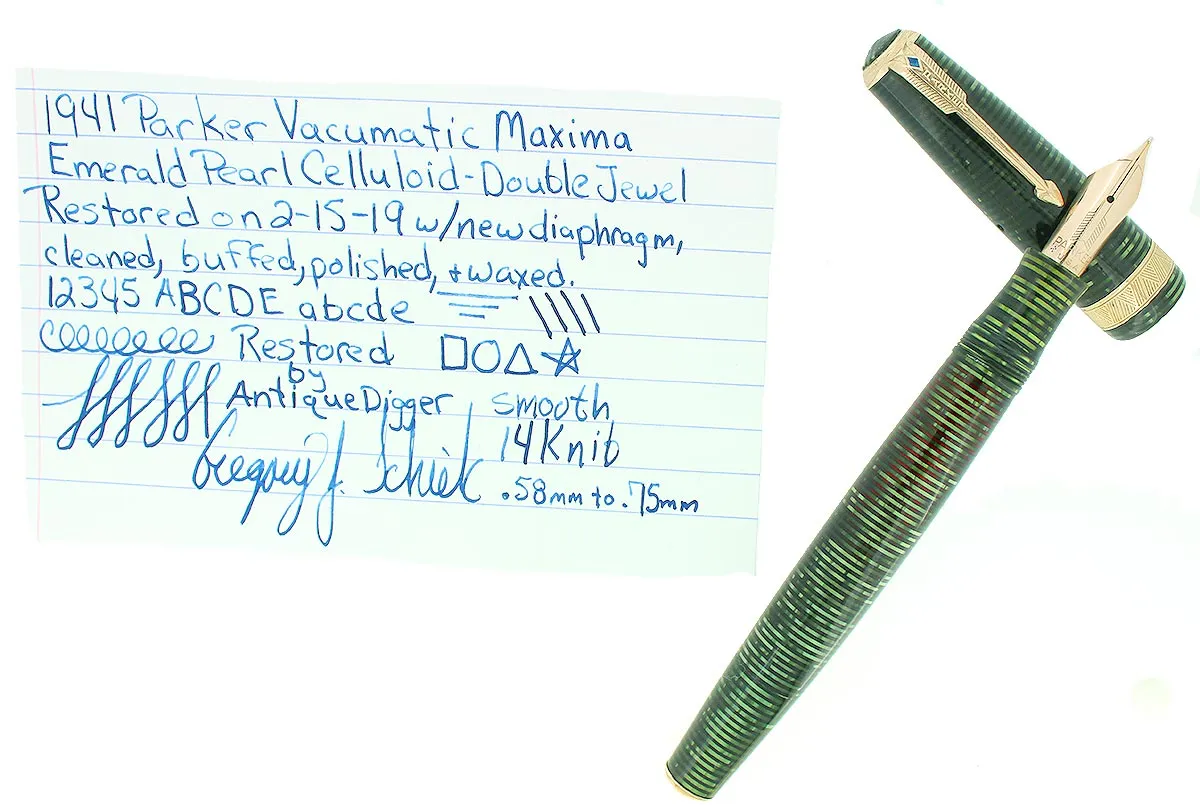 1941 Parker Vacumatic Maxima
Emerald Pearl Celluloid-Double Jewel
Restored on 2-15-19 w/new diaphragm,
cleaned, buffed, polished, + waxed.
12345 ABCDE abcde
Restored
by
AntiqueDigger
smooth
14K nib
Gregory J.
.58mm to .75mm